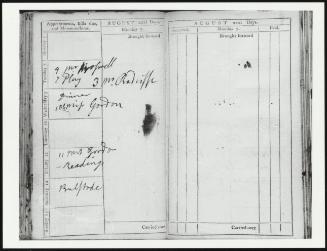 Appointments, Bills due,
and Memorandums.
AUGUST
Days.
Monday 7.
Brought forward
9 mr Boswell
7 Play 3 mr Radcliffe
Dinner
Gordon
11 mrs Gordon
Reading
Bulstrode
Carried over
AUGUST
Days.
Received.
Monday 7.
Paid.
Brought forward
Carried over